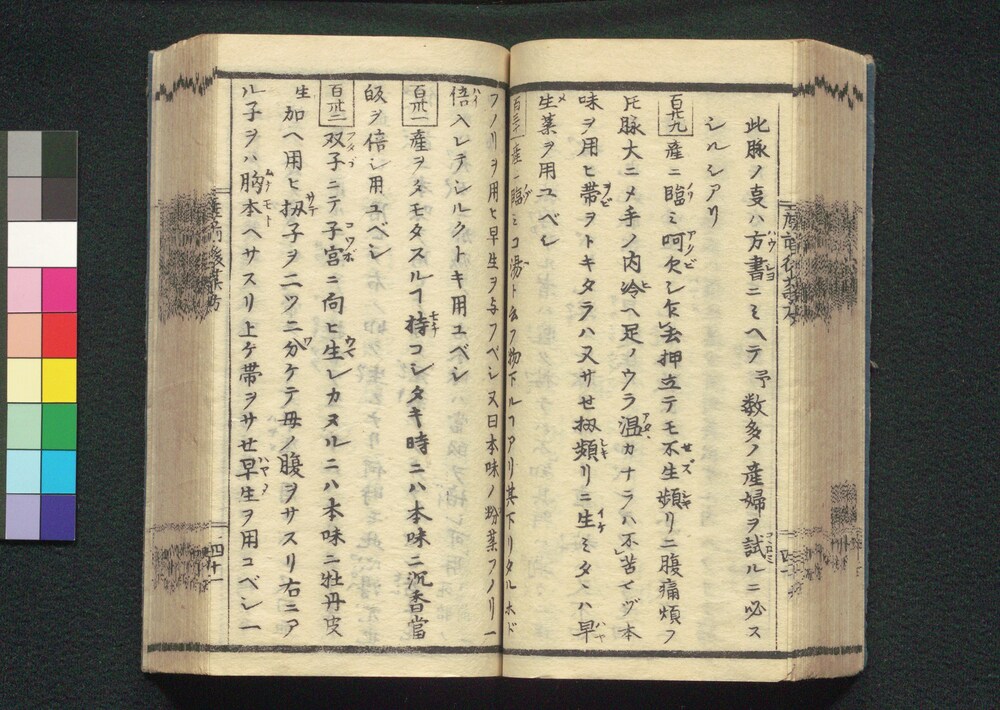 此脉ノ夏ハ方書ニミヘテ予数多ノ産婦ヲ試ルニ必ス
シルシアリ
百廿九 産ニ臨ミ呵欠シ乍去押立テモ不生頻リニ腹痛煩フ
圧脉大ニメ手ノ内冷ヘ足ノウラ温カナラハ不苦マヅ本
味ヲ用ヒ帯ヲトキタラハ又サせ扨頻リニ生ミタヽハ早
生薬ヲ用ユベシ
百三十 産ニ臨ミコ湯ト云フ物下ルフアリ其下リタルホド
フノリヲ用ヒ早生ヲ与フベシ又日本味ノ粉薬フノリ一
倍入レテシルクトキ用ユベシ
百卅一 産ヲミモタスルヿ持コシタキ時ニハ本味ニ沉香當
皈ヲ倍シ用ユベシ
百卅二 双子ニテ子宮ニ向ヒ生レカヌルニハ本味ニ牡丹皮
加ヘ用ヒ扨子ヲ二ツニ分ケテ母ノ腹ヲサスリ右ニア
ル子ヲハ胸本ヘサスリ上ケ帯ヲサせ早生ヲ用ユベシ一
産前後其方
四十一